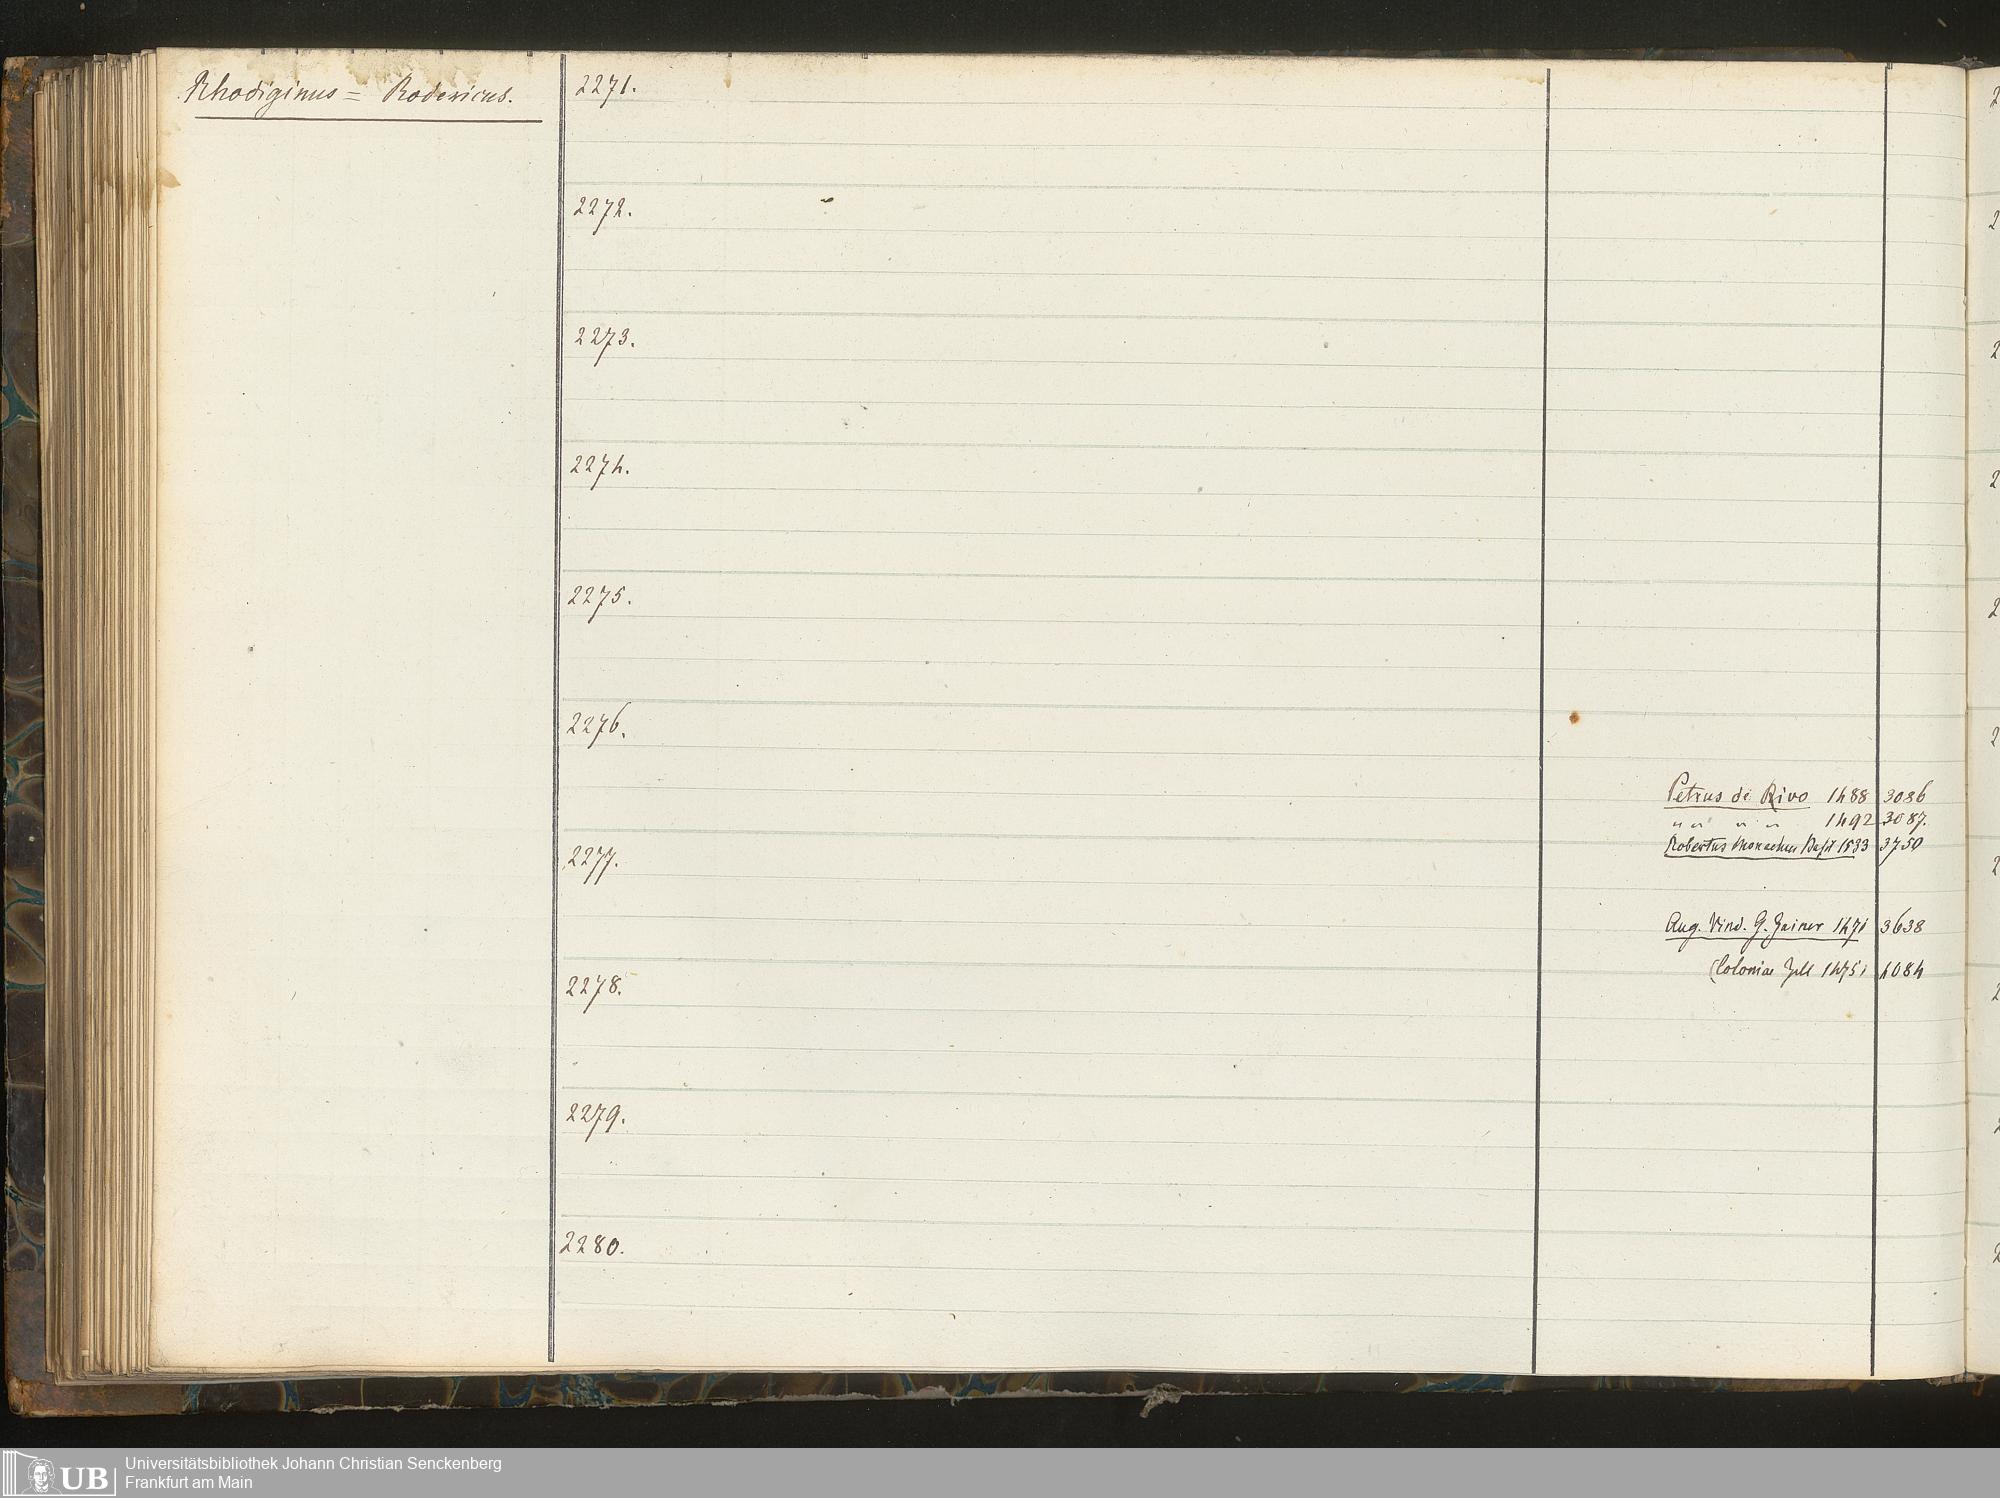 Rhodiginus = Rodericus.
2271.
2272.
2273.
2274.
2275.
2276.
Petrus de Rivo 1488 3086
" " " " 1492 3087.
Robertus Monachus Basil 1533 3750
2277.
Aug. Vind. G. Zainer 1471 3638
(Coloniae Zell 1475) 4084
2278.
2279.
2280.
UB
Universitätsbibliothek Johann Christian Senckenberg
Frankfurt am Main